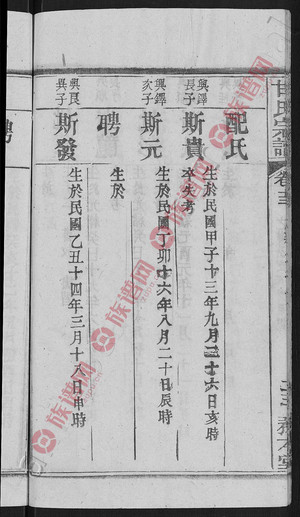 甘氏宗譜
卷三
配氏
興鐸長子
斯貴
生於民國甲子十三年九月二十六日亥時
卒失考
興鐸次子
斯元
生於民國丁卯十六年八月二十日辰時
聘
生於
興良異子
斯發
生於民國乙丑十四年三月十八日申時
聘
族谱网